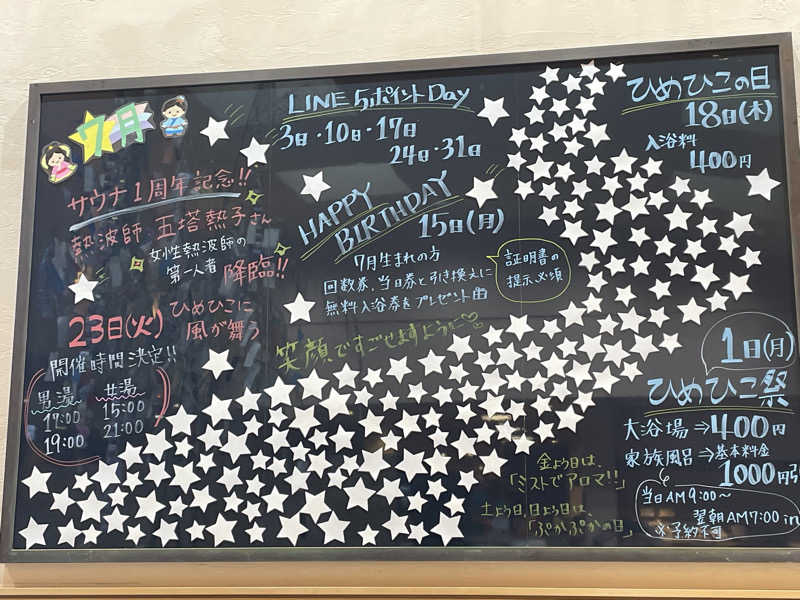 7月
サウナ1周年記念!!
熱波師 五塔熱子さん
女性熱波師の
第一人者 降臨!!
23日(火) ひめひこに
風が舞う
開催時間決定!!
男湯 女湯
17:00 15:00
19:00 21:00
LINE 5ポイントDay
3日・10日・17日
24日・31日
HAPPY
BIRTHDAY
15日(月)
7月生まれの方
回数券、当日券と引き換えに
無料入浴券をプレゼント
証明書の
提示必須
笑顔ですごせますように
ひめひこの日
18日(木)
入浴料
400円
1日(月)
ひめひこ祭
大浴場⇒400円
家族風呂⇒基本料金
1000円引
当日AM9:00～
翌朝AM7:00in
※予約不可
金よう日は、
「ミストでアロマ!!」
土よう日,日よう日は、
「ぷかぷかの日」